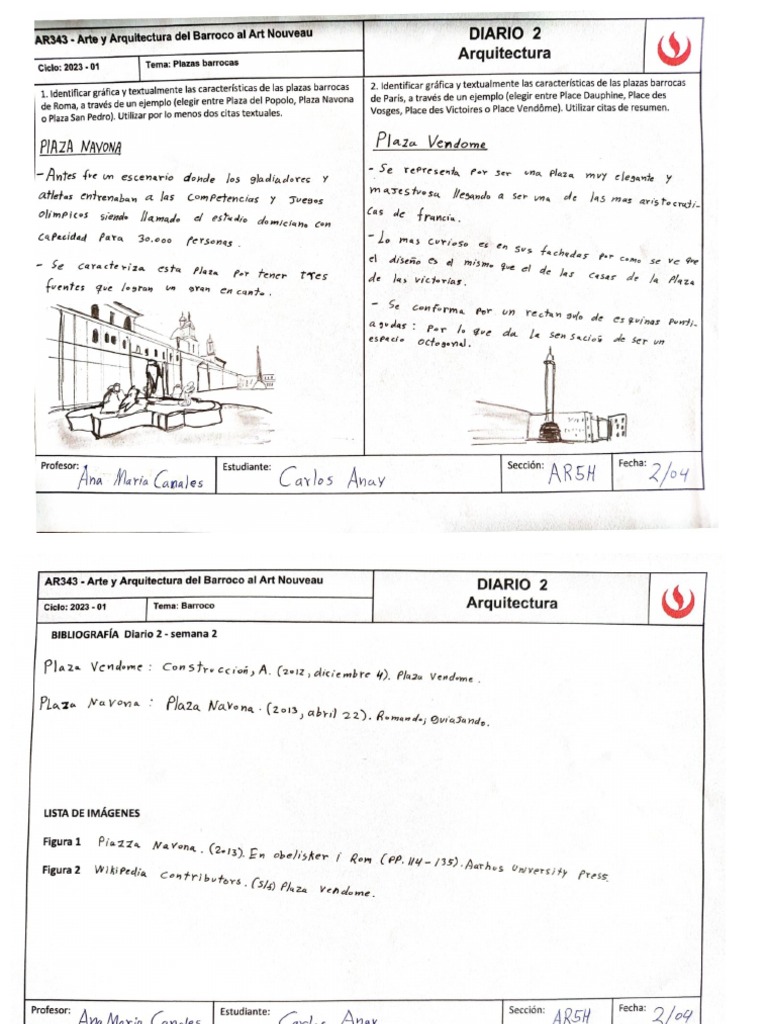 AR343 - Arte y Arquitectura del Barroco al Art Nouveau
DIARIO 2
Arquitectura
Ciclo: 2023 - 01
Tema: Plazas barrocas
1. Identificar gráfica y textualmente las características de las plazas barrocas
de Roma, a través de un ejemplo (elegir entre Plaza del Popolo, Plaza Navona
o Plaza San Pedro). Utilizar por lo menos dos citas textuales.
PlAZA NAVONA
- Antes fue un escenario donde los gladiadores y
atletas entrenaban a las competencias y Juegos
olimpicos siendo llamado el estadio domiciano con
capacidad para 30.000 personas.
- Se caracteriza esta plaza por tener tres
fuentes que logran un gran encanto.
2. Identificar gráfica y textualmente las características de las plazas barrocas
de París, a través de un ejemplo (elegir entre Place Dauphine, Place des
Vosges, Place des Victoires o Place Vendôme). Utilizar citas de resumen.
Plaza Vendome
- Se representa por ser una plaza muy elegante y
majestuosa llegando a ser una de las mas aristocrati-
cas de francia.
- Lo mas curioso es en sus fachadas por como se ve que
el diseño es el mismo que el de las casas de la Plaza
de las victorias.
- Se conforma por un rectangulo de esquinas punti-
agudas: por lo que da la sensación de ser un
espacio octogonal.
Profesor: Ana Maria Canales
Estudiante: Carlos Anay
Sección: AR5H
Fecha: 2/04
AR343 - Arte y Arquitectura del Barroco al Art Nouveau
DIARIO 2
Arquitectura
Ciclo: 2023 - 01
Tema: Barroco
BIBLIOGRAFÍA Diario 2 - semana 2
Plaza Vendome: Construcción, A. (2012, diciembre 4). Plaza Vendome.
Plaza Navona: Plaza Navona. (2013, abril 22). Romando; @viajando.
LISTA DE IMÁGENES
Figura 1 Piazza Navona. (2013). En obelisker i Rom (pp. 114-135). Aarhus University Press.
Figura 2 Wikipedia contributors. (s/s) Plaza vendome.
Profesor: Ana Maria Canales
Estudiante: Carlos Anay
Sección: AR5H
Fecha: 2/04